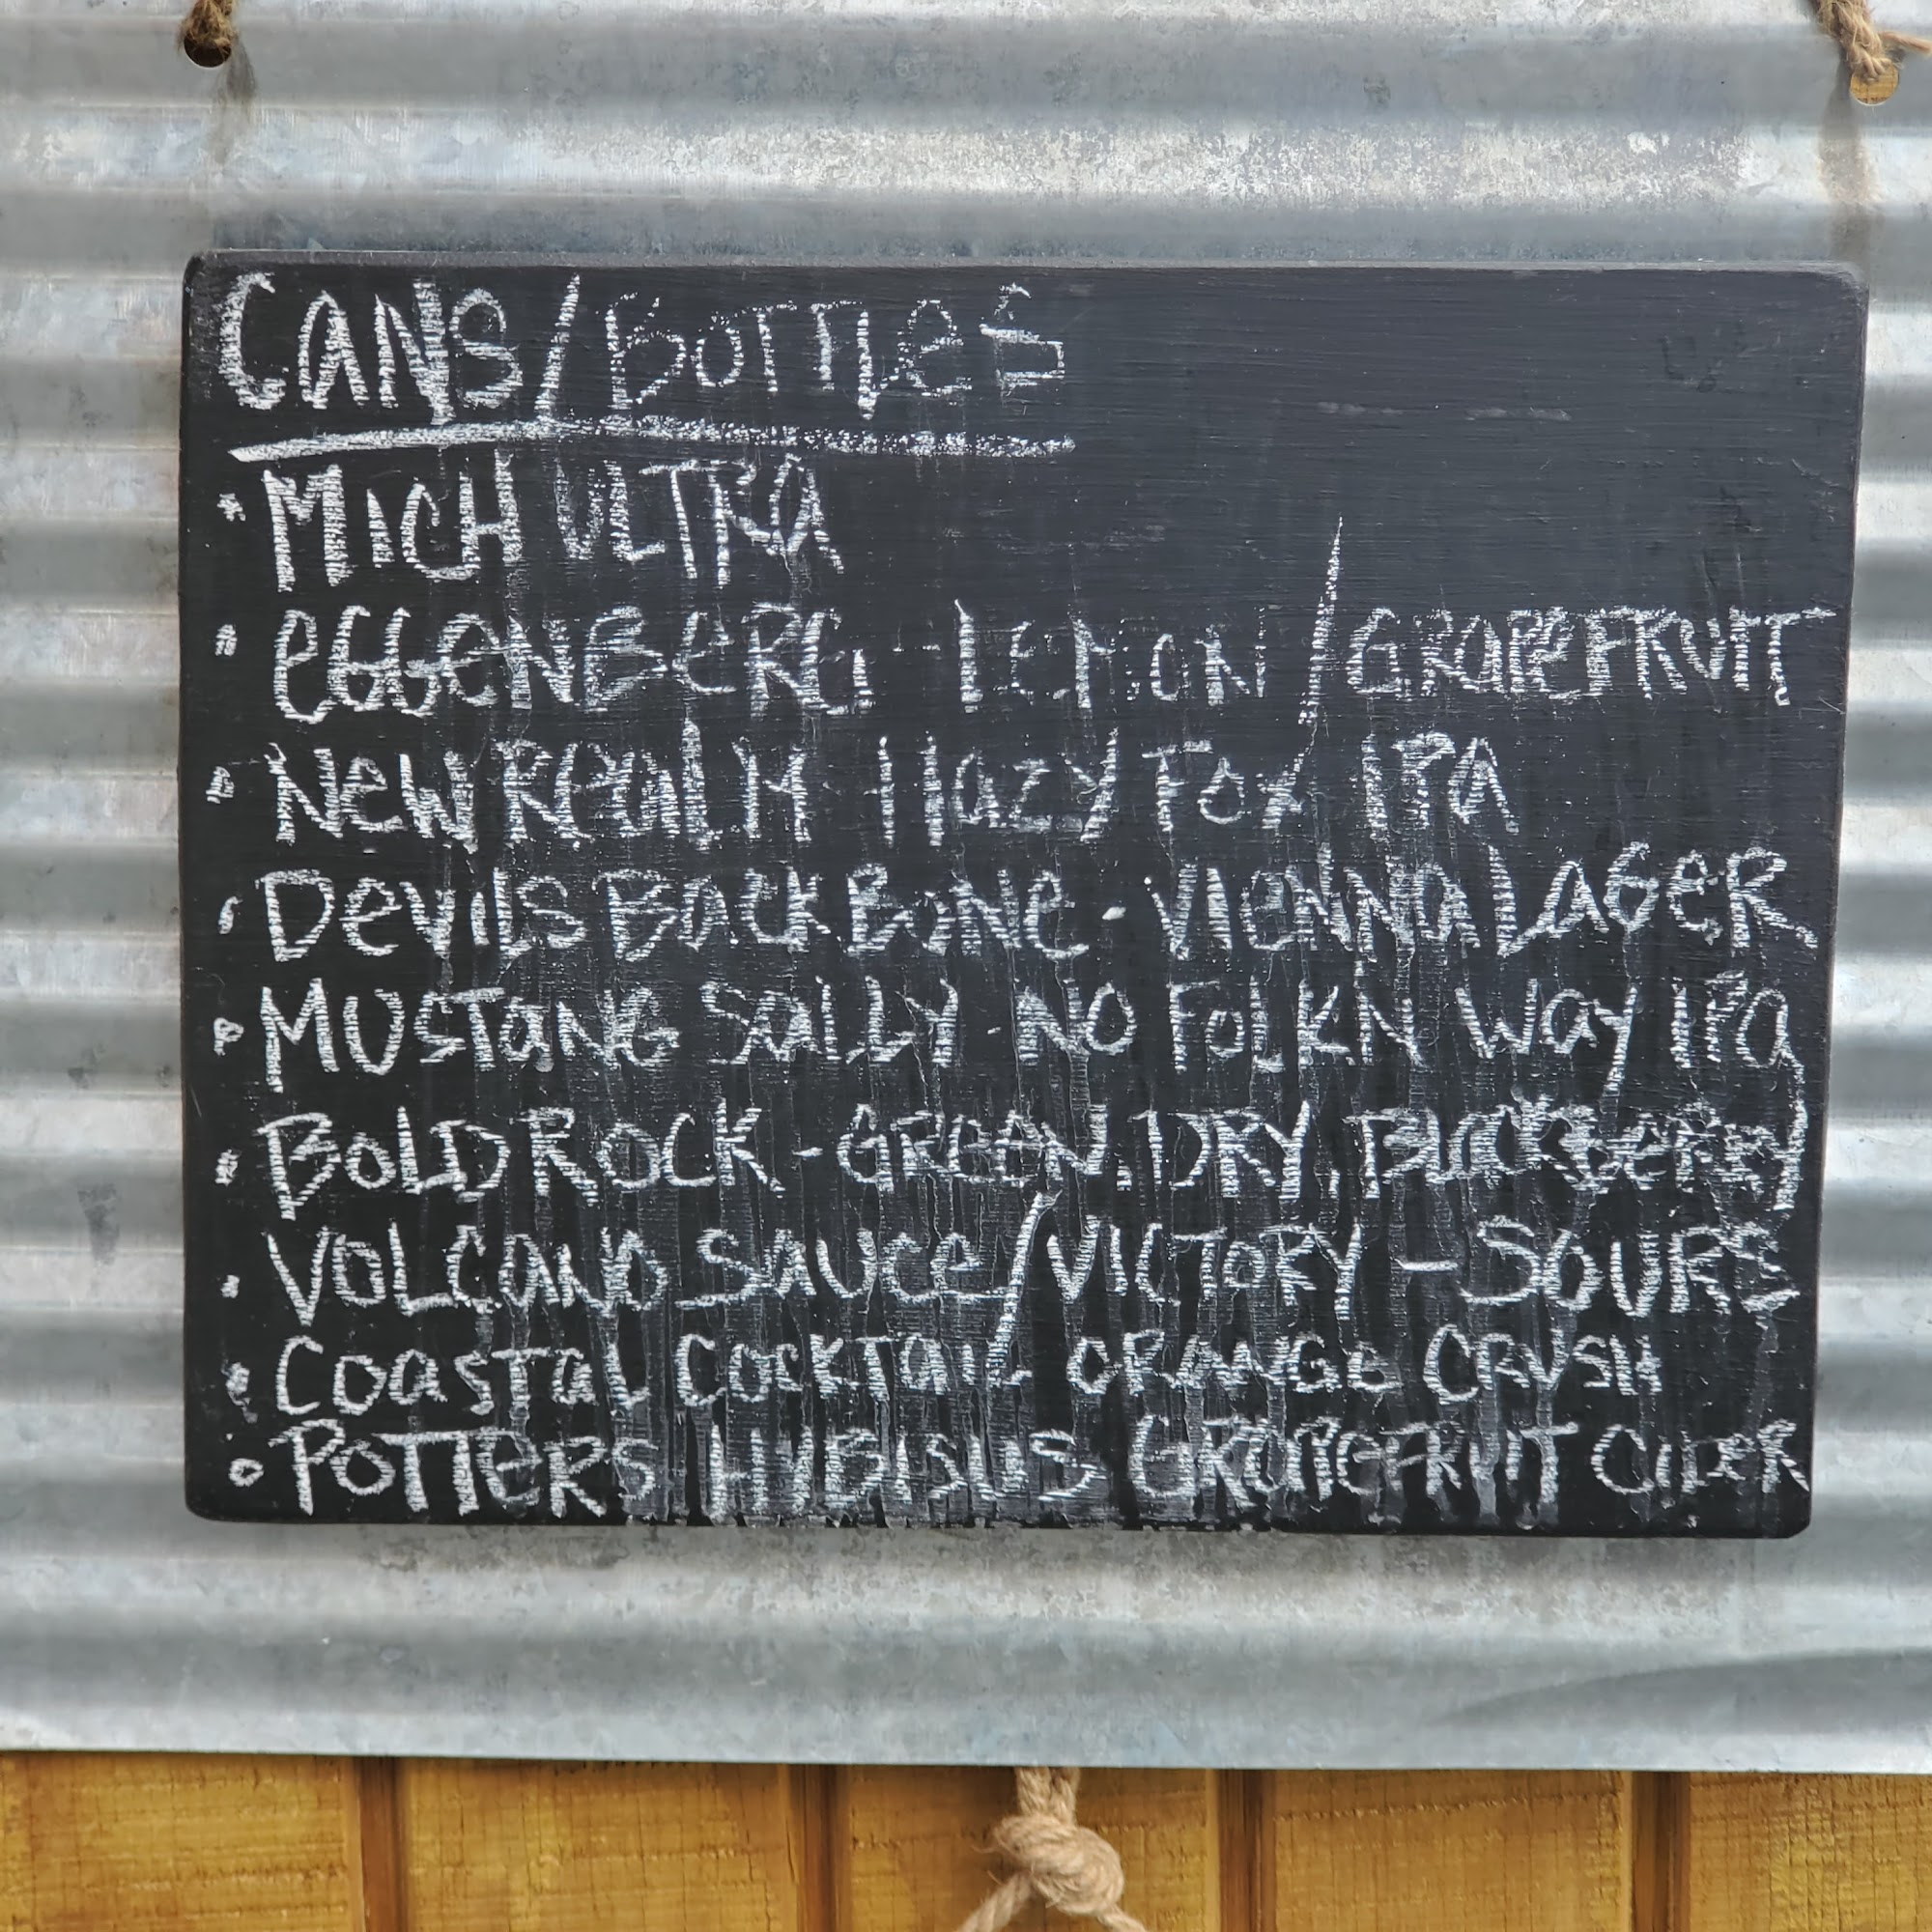 CANS/BOTTLES
• MICH ULTRA
• EGGENBERG - LEMON/GRAPEFRUIT
• NEW REALM HAZY FOX IPA
• DEVILS BACKBONE - VIENNA LAGER
• MUSTANG SALLY - NO FOLKN WAY IPA
• BOLD ROCK - GREEN, DRY, BLACKBERRY
• VOLCANO SAUCE/VICTORY - SOURS
• COASTAL COCKTAIL ORANGE CRUSH
• POTTERS HIBISUS GRAPEFRUIT CIDER